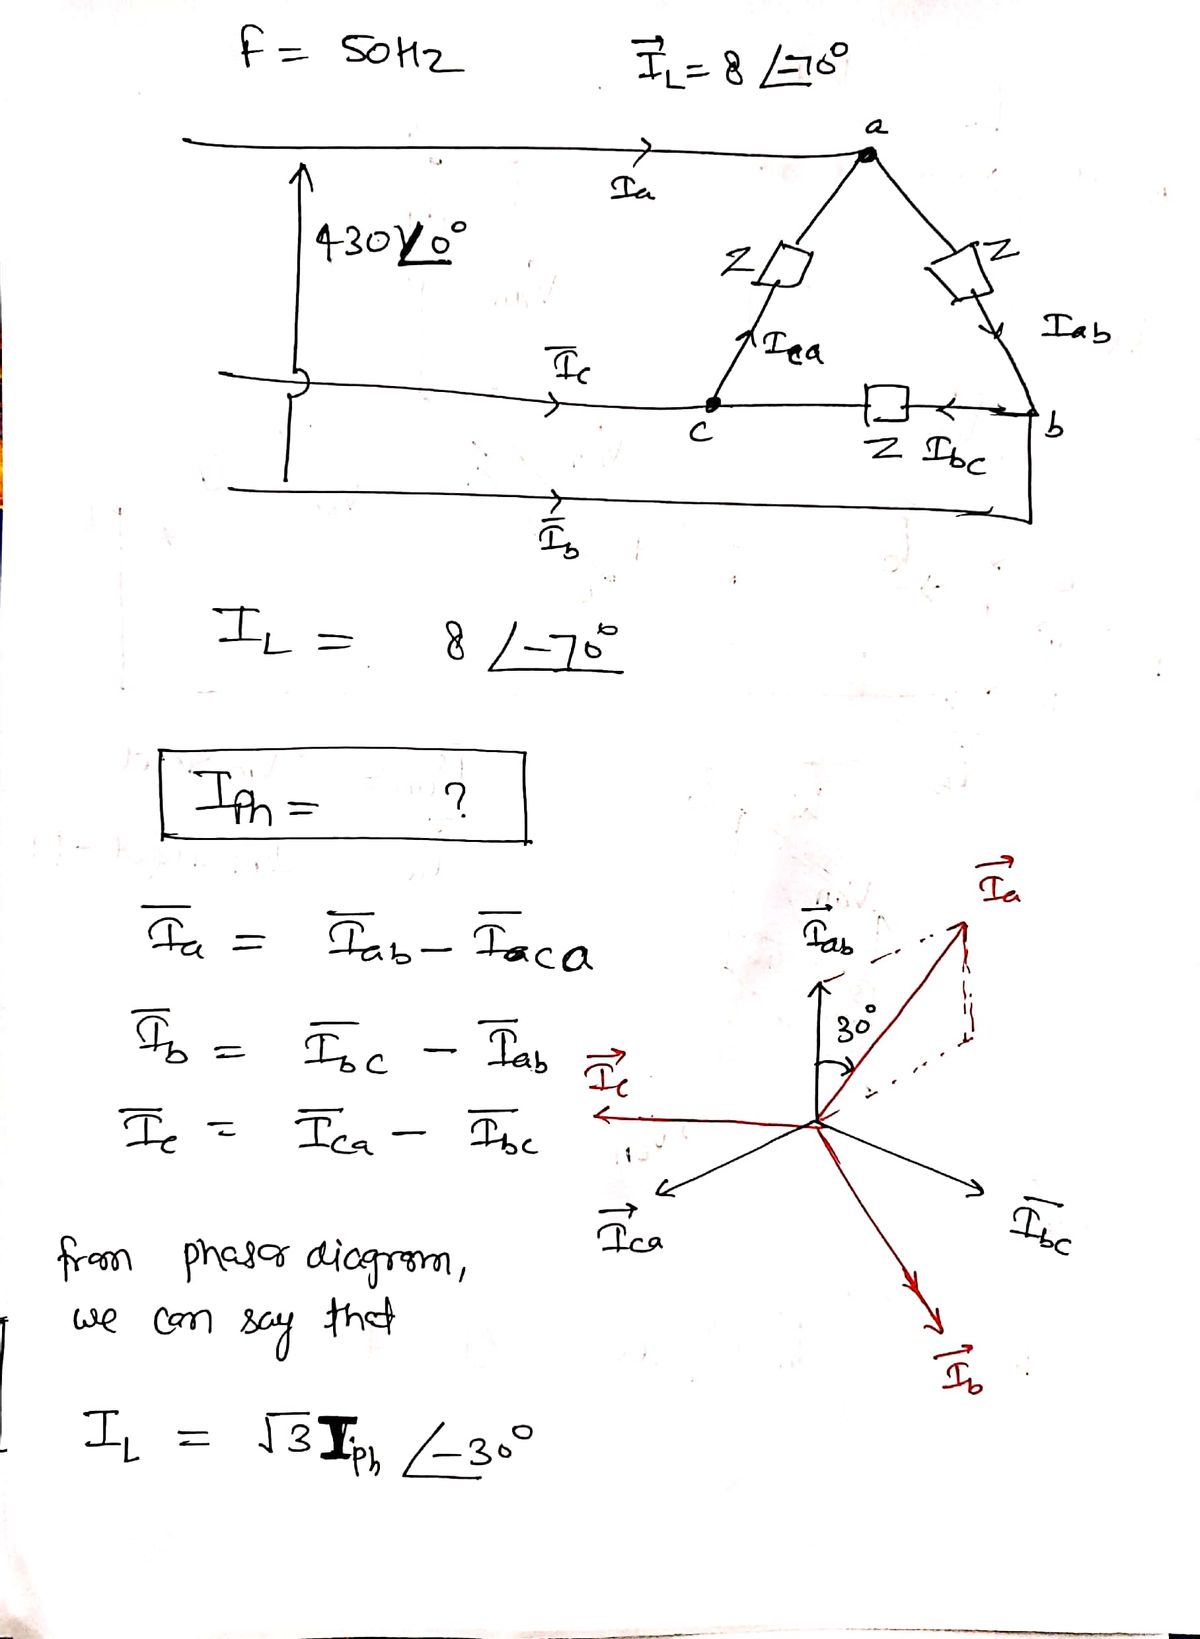 f = 50Hz
I⃗L = 8 ∠-70°
a
Ia
430V∠0°
Z
Z
Iab
Ica
I̅c
c
Z
Ibc
b
I̅b
IL = 8 ∠-70°
Iph = ?
I̅a = I̅ab - I̅aca
I̅b = I̅bc - I̅ab
I̅c = I̅ca - I̅bc
I⃗a
I⃗ab
30°
I⃗c
I⃗ca
I̅bc
I⃗b
from phasor diagram,
we can say that
IL = √3 Iph ∠-30°